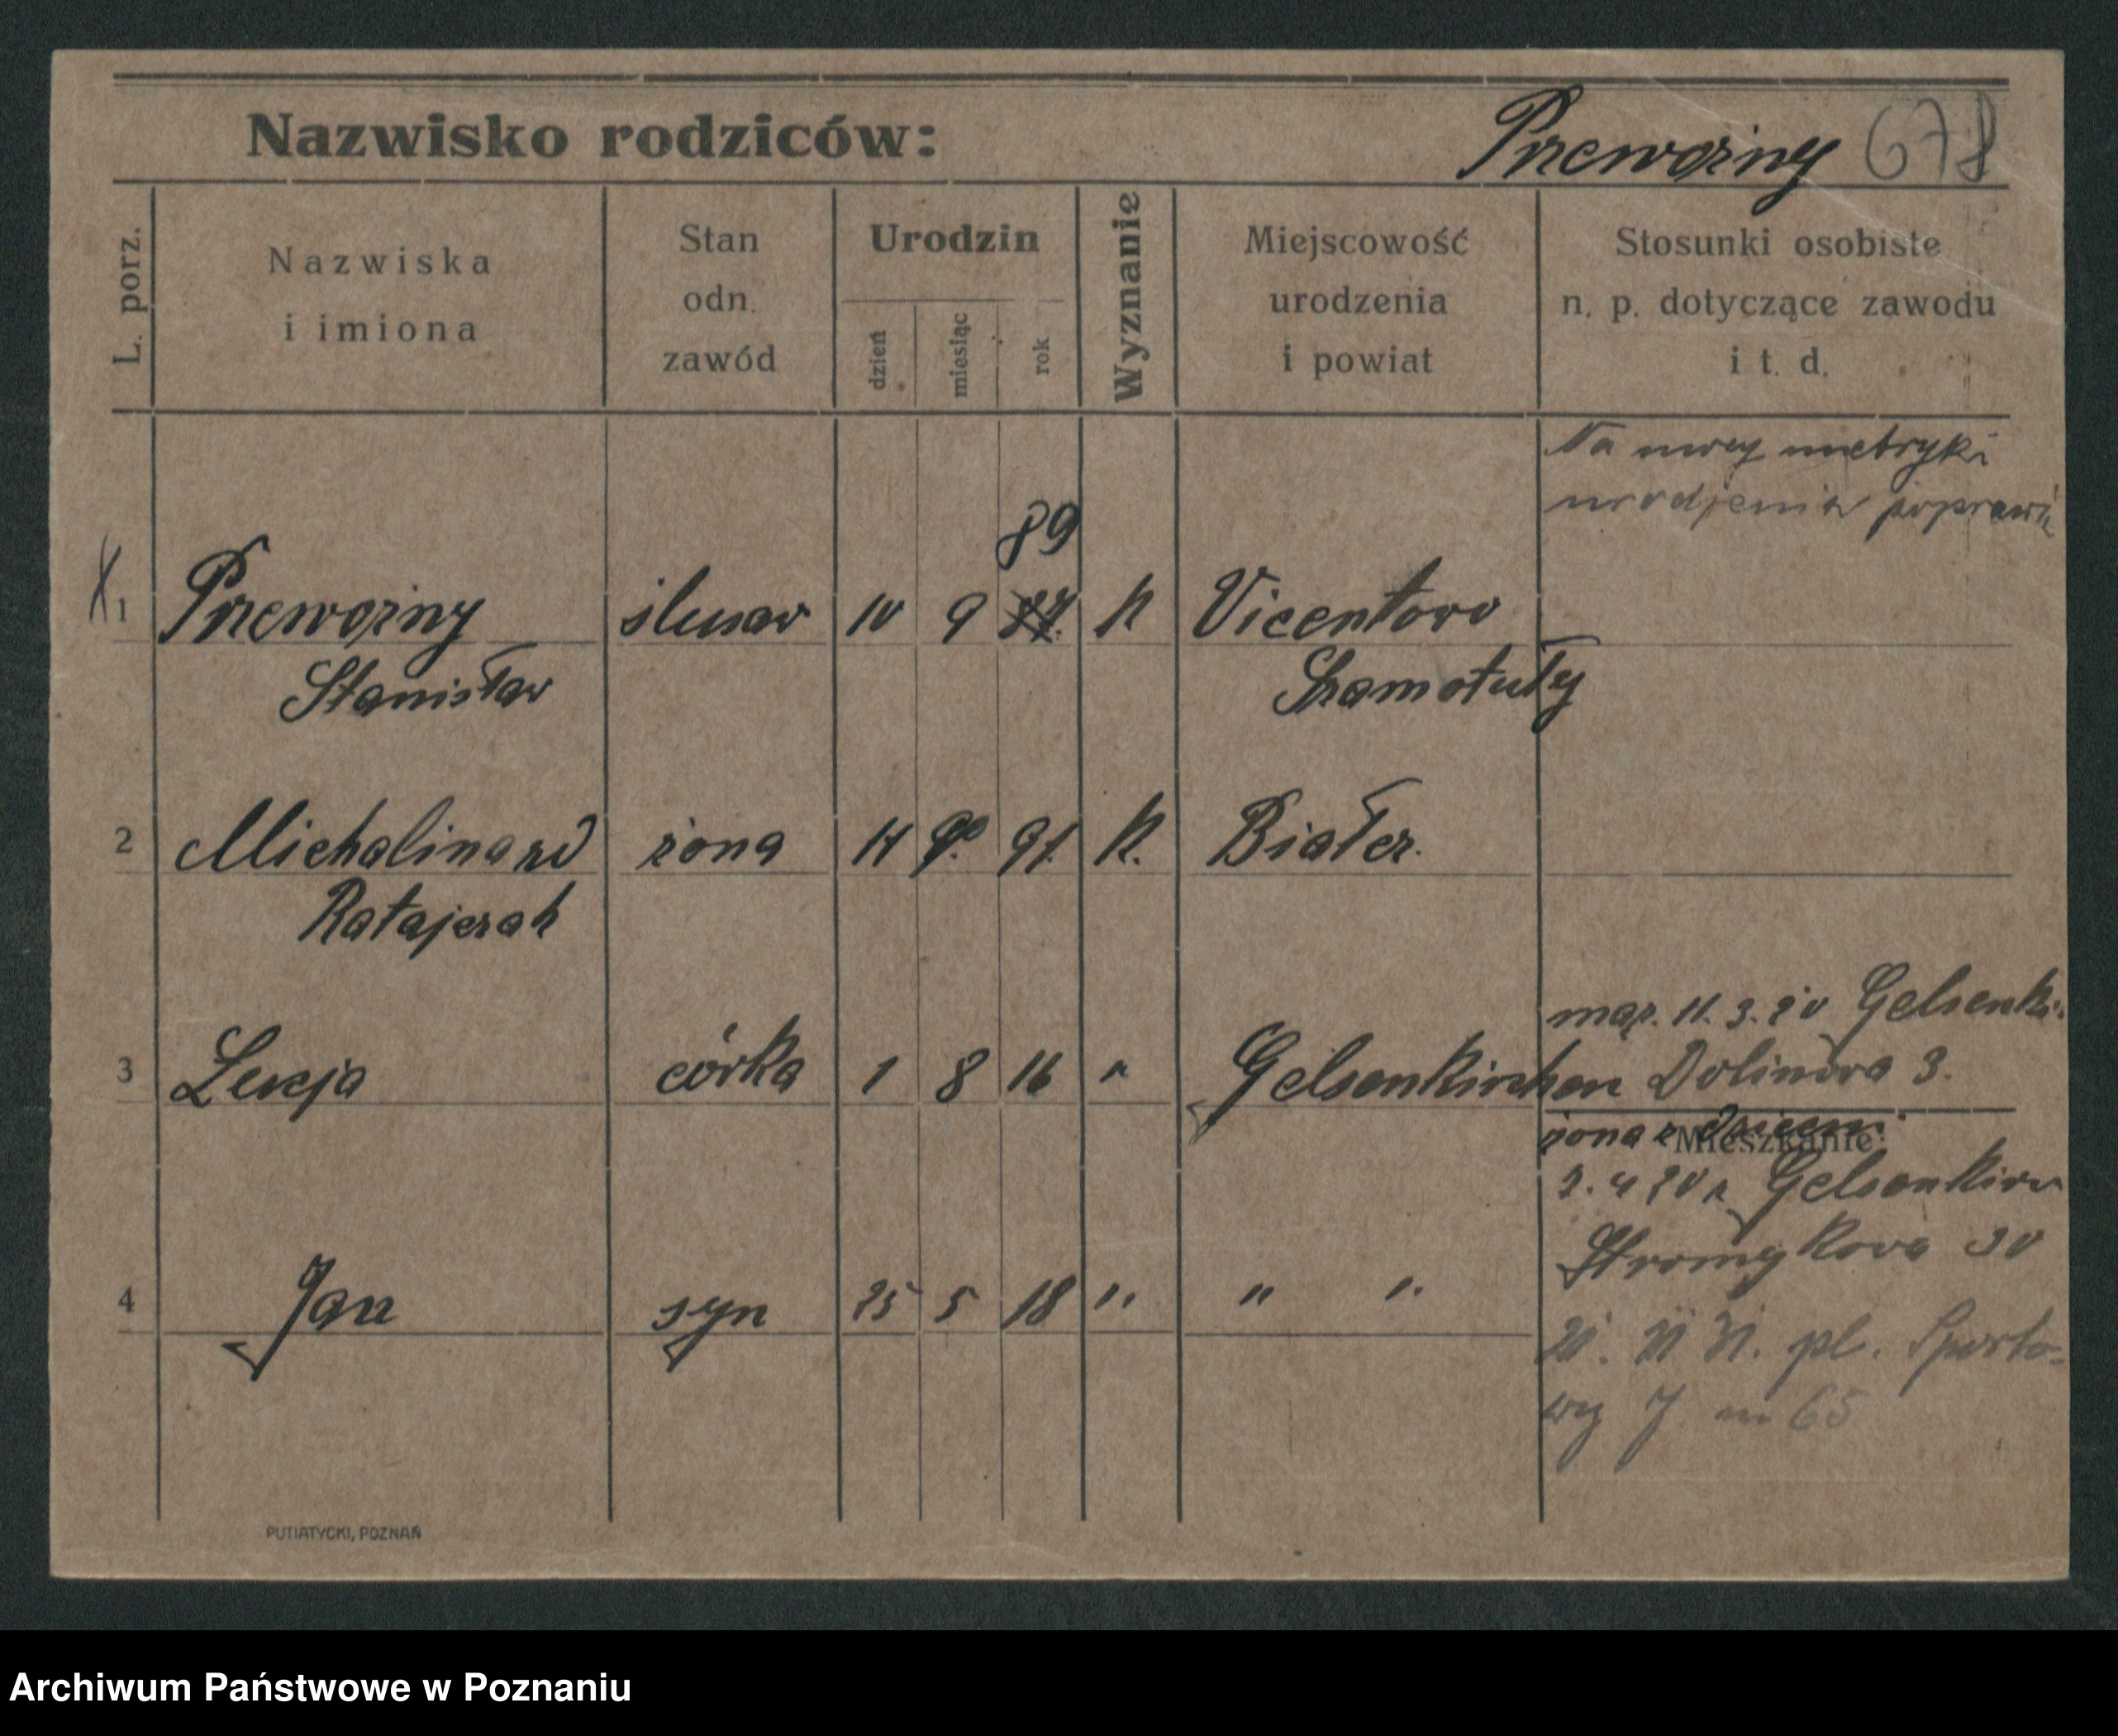 Nazwisko rodziców: Przewoźny 678
L. porz.
Nazwiska
i imiona
Stan
odn.
zawód
Urodzin
dzień
miesiąc
rok
Wyznanie
Miejscowość
urodzenia
i powiat
Stosunki osobiste
n. p. dotyczące zawodu
i t. d.
Na mocy metryki
urodzenia poprawić
89
1 Przewoźny ślusar 10 9 K Vicentowo
Stanisław Szamotuły
2 Michalina zd żona 14 91. K. Białcz.
Ratajczak
mąż. 11. 3. 20 Gelsenki.
3 Lucja córka 1 8 16 " Gelsenkirchen Dolinowa 3.
żona z dziećmi
Mieszkanie:
2. 4 20 z Gelsenkirn
Stromykowa 30
4 Jan syn 25 5 18 " " "
pl. Sporto-
wy 7. m 65
PUTIATYCKI, POZNAŃ
Archiwum Państwowe w Poznaniu